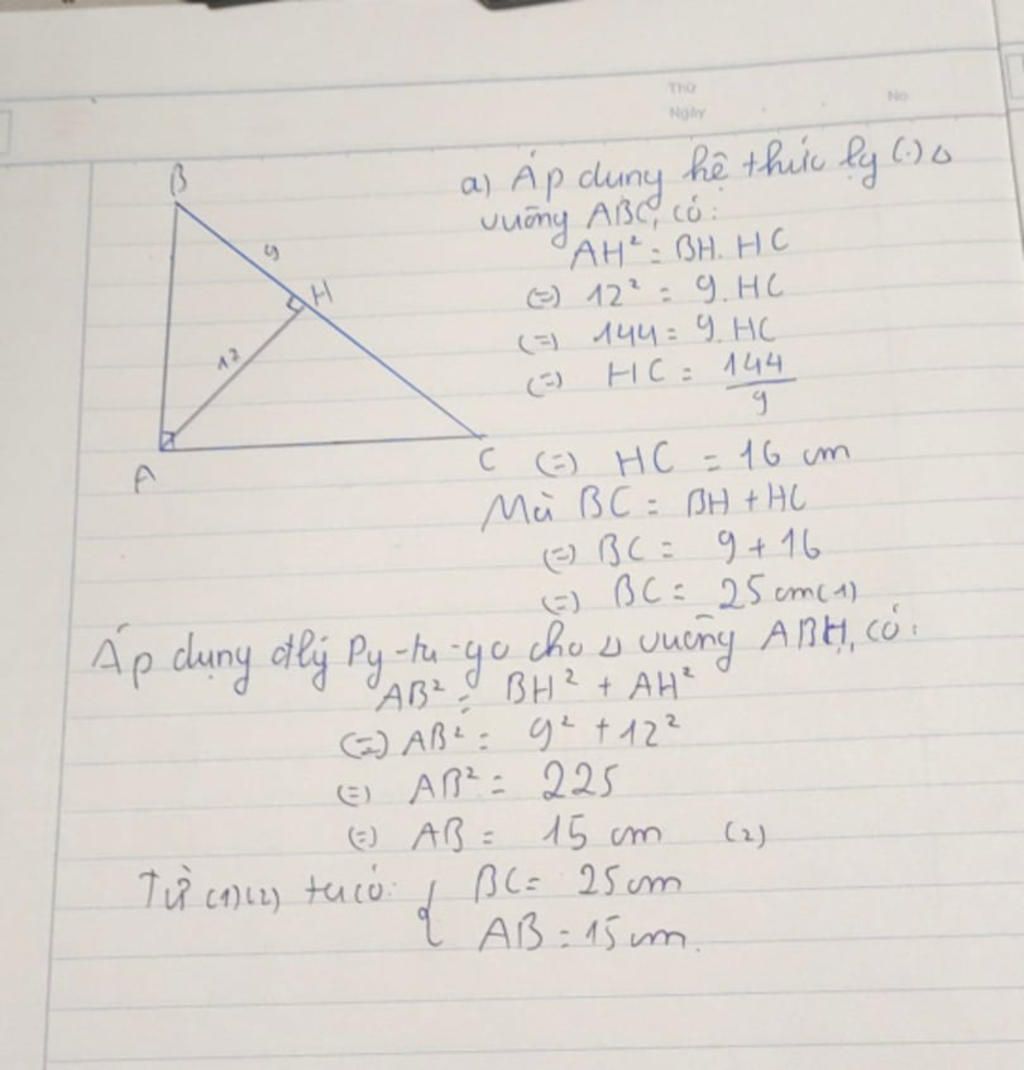 Thứ
Ngày
No
B
9
H
12
A
C
a) Áp dụng hệ thức lg (.) Δ
vuông ABC, có:
AH² = BH. HC
(=) 12² = 9. HC
(=) 144 = 9. HC
(=) HC = 144/9
(=) HC = 16 cm
Mà BC = BH + HC
(=) BC = 9 + 16
(=) BC = 25 cm (1)
Áp dụng đlý Py-ta-go cho Δ vuông ABH, có:
AB² = BH² + AH²
(=) AB² = 9² + 12²
(=) AB² = 225
(=) AB = 15 cm (2)
Từ (1)(2) ta có: { BC = 25 cm
AB = 15 cm.